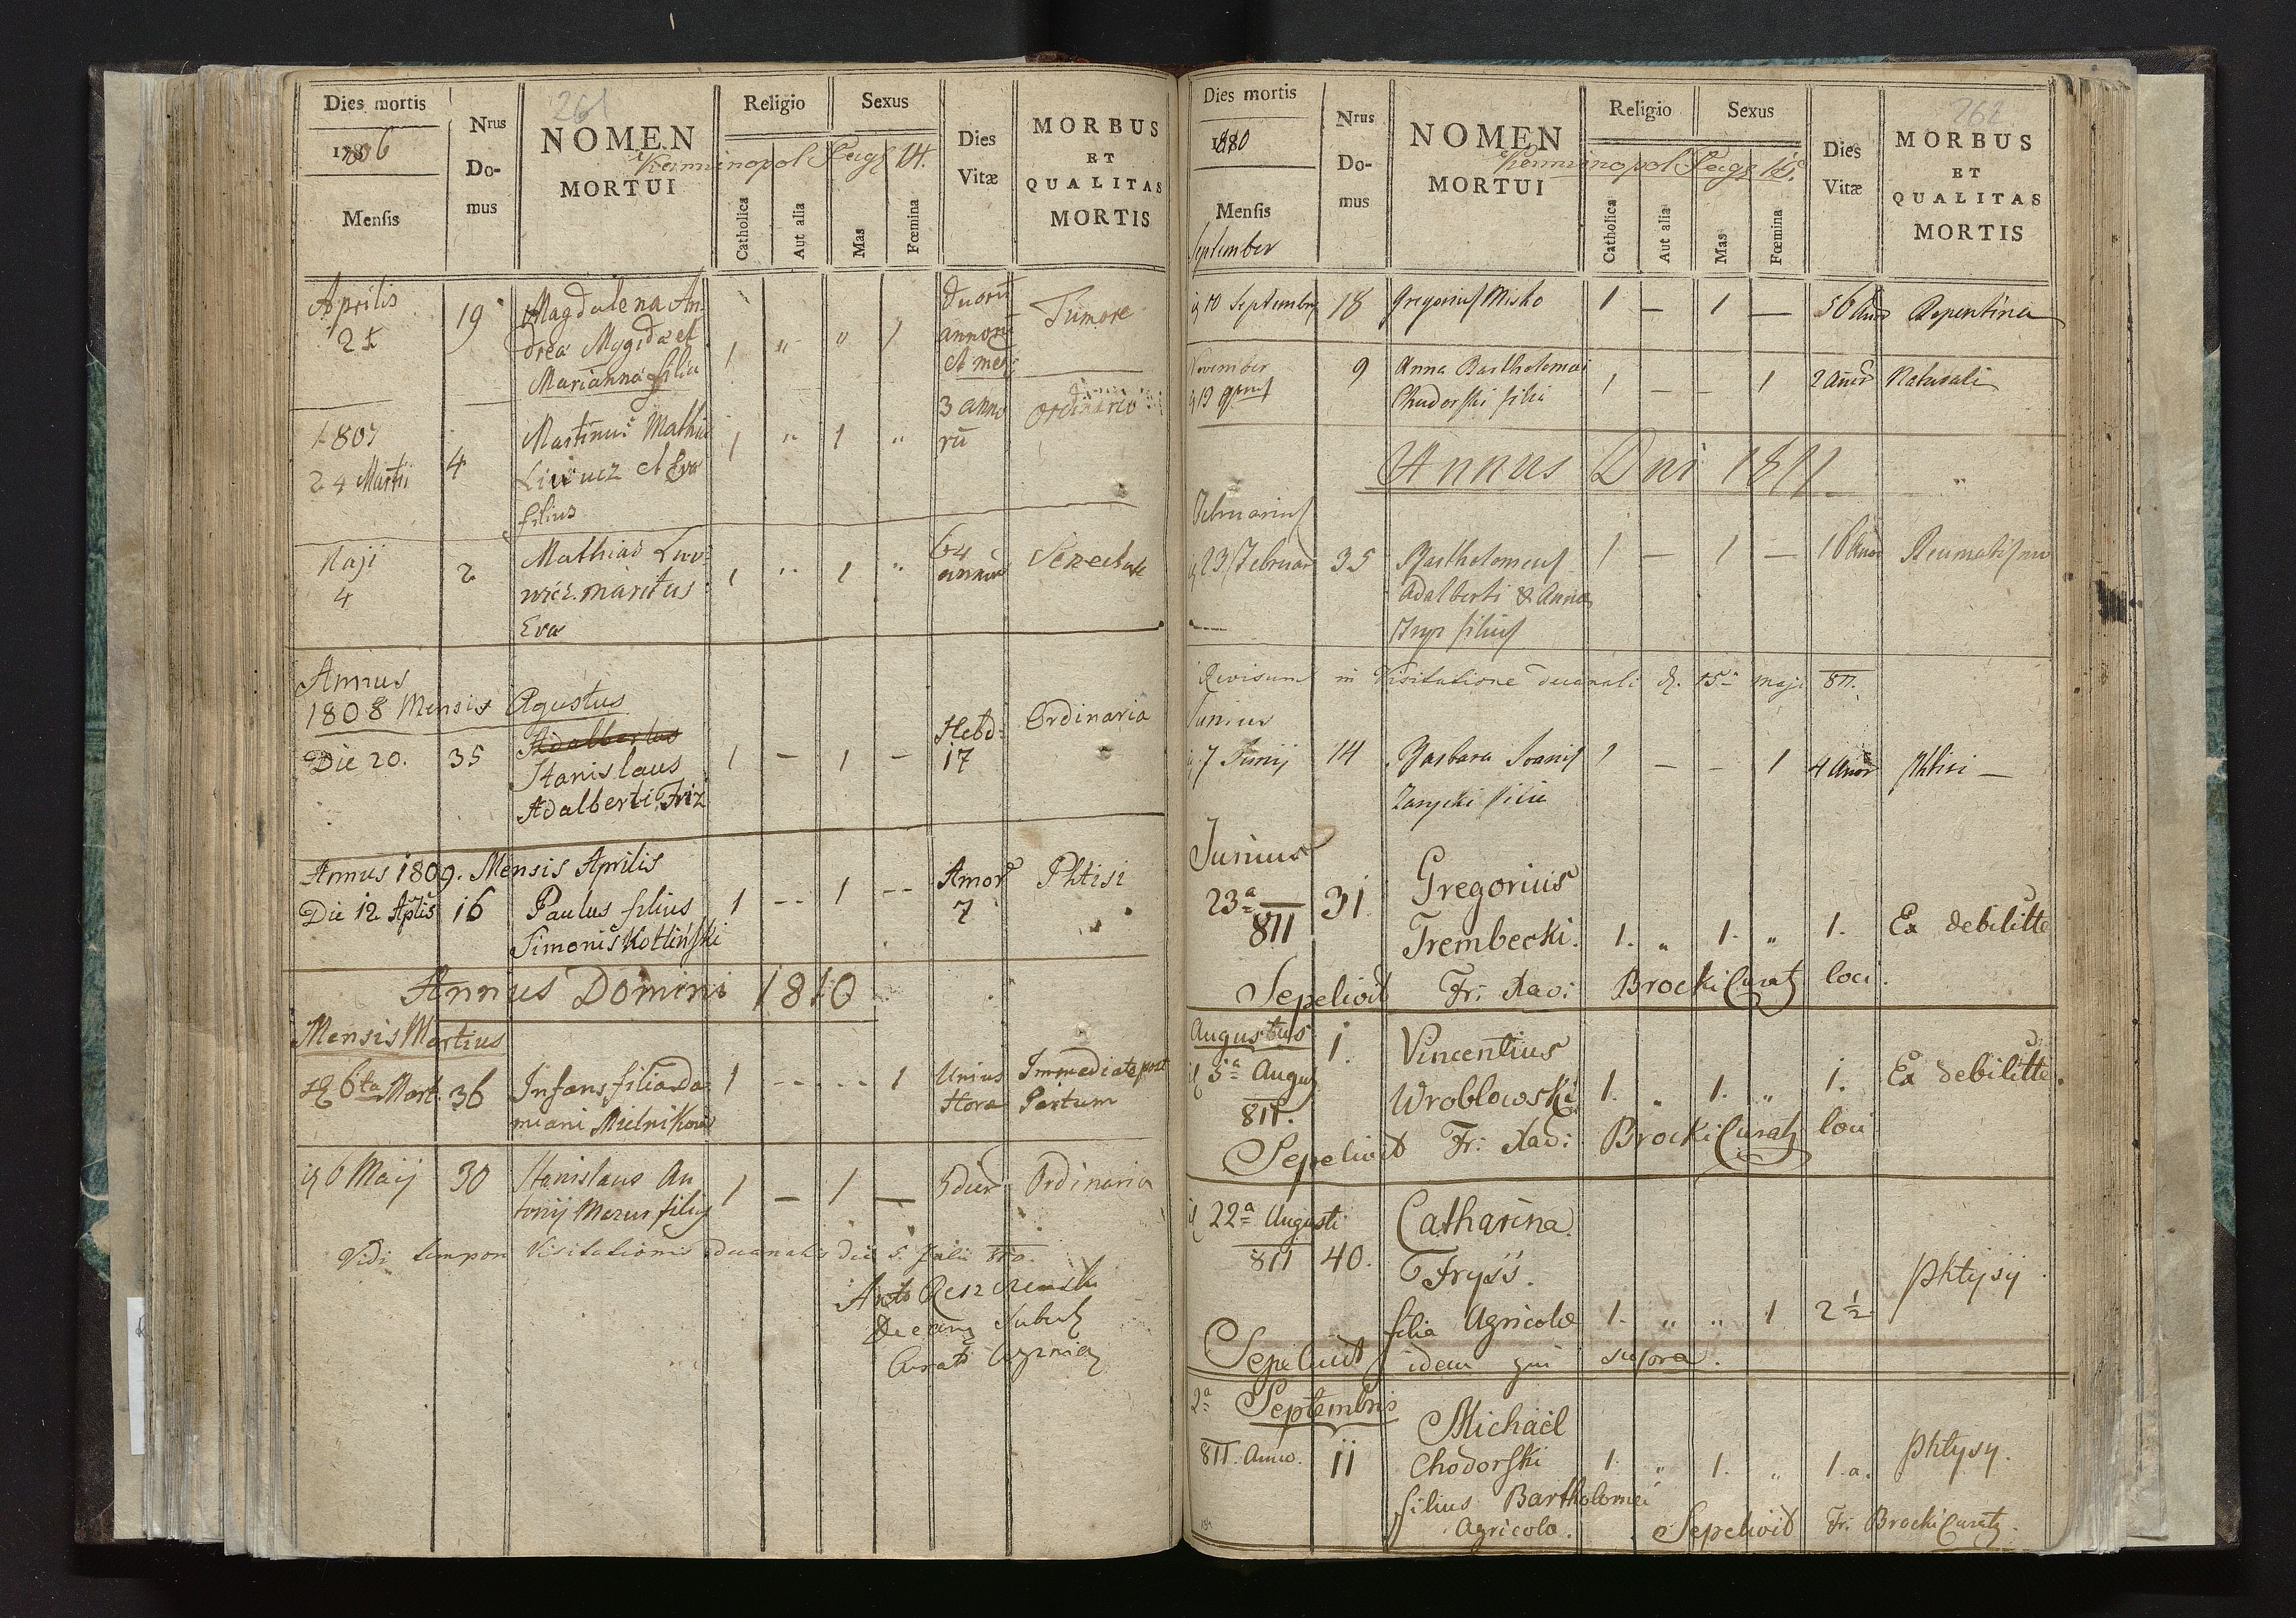 261
Dies mortis
1806
Mensis
Nrus Do- mus
NOMEN
MORTUI
Religio
Catholica
Aut alia
Sexus
Mas
Fœmina
Dies Vitæ
MORBUS
ET
QUALITAS
MORTIS
Aprilis
19
Magdalena An-
drea Mygdа et
Marianna filia
1 " " 1
duorū
annorū
et mes:
Tumore
1807
24 Martii
4
Martinus Mathia
et Eva
filius
1 " 1 "
3 anno
rū
ordinario
Maji
4
2
Mathias Luo-
wicz. maritus
Eva
1 " 1 "
64
annorū
Senectute
Annus
1808 Mensis Agustus
Die 20.
35
Adalbertus
Stanislaus
Adalberti Friz
1 – 1 –
Hebd:
17
Ordinaria
Annus 1809. Mensis Aprilis
Die 12 Aplis
16
Paulus filius
Simonis Kotlinski
1 -- 1 --
Anor
7
Phtisi
Annus Domini 1810
Mensis Martius
6ta Mart.
36
Infans filia Da-
miani Mielnikow
1 -- -- 1
Unius
Hora
Immediate post
Partum
6 Maij
30
Stanislaus An
tonij Mazur filius
1 – 1 –
5 dier
Ordinaria
Vidi tempore Visitationis decanalis die 5. Julii 810.
262
Dies mortis
1810
Mensis
September
Nrus Do- mus
NOMEN
MORTUI
Religio
Catholica
Aut alia
Sexus
Mas
Fœmina
Dies Vitæ
MORBUS
ET
QUALITAS
MORTIS
10 Septembris
18
Gregorius Misko
1 – 1 –
56 Anor
Repentina
November
13 9bris
9
Anna Bartholomei
Chudorski filia
1 – – 1
2 Anor
Naturali
Annus Dni 1811
Februarius
23 Februar
35
Bartholomeus
Adalberti & Anna
Fryz filius
1 – 1 –
16 Anor
Reumatismo
Revisum in Visitatione decanali d. 15a maji 811.
Junius
7 Junij
14
Barbara Joannis
Zarycki filia
1 – – 1
4 Anor
Phtisi –
Junius
23a
811
31
Gregorius
Trembecki.
1. " 1. " 1.
Ex debilitte
Sepelivit Fr: Xav: Brocki Curatus loci.
Augustus
5a Augus
811.
1.
Vincentius
Wroblowski
1. " 1. " 1.
Ex debilitte.
Sepelivit Fr: Xav: Brocki Curatus loci
22a Augusti
811
40.
Catharina
Fryss.
filia Agricolæ
1. " " 1 2 1/2
Phtysy.
Sepelivit idem qui supra.
2a Septembris
811. Anno.
11
Michaël
Chodorski
filius Bartholomei
Agricola.
1. " 1. " 1.a.
Phtysy.
Sepelivit Fr. Brocki Curatus.